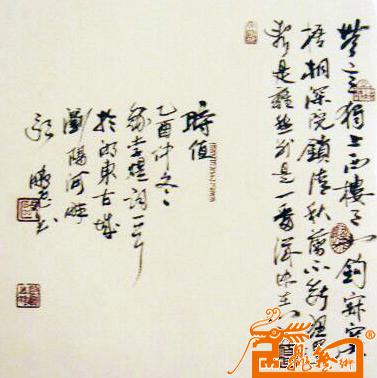 無言獨上西樓月如鈎寂寞
梧桐深院鎖清秋剪不斷理還
亂是離愁別是一番滋味在
時值
乙酉仲冬
錄李煜詞一
於 東古城
瀏陽河畔
書